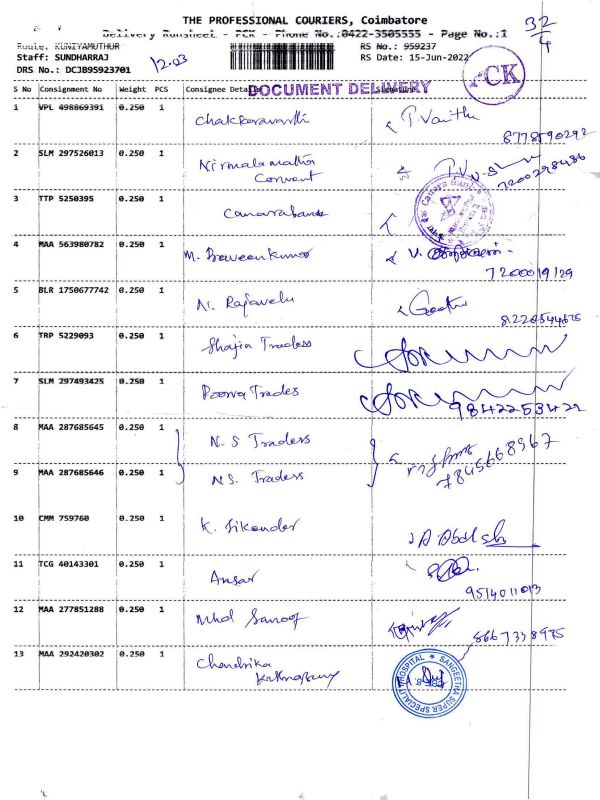 THE PROFESSIONAL COURIERS, Coimbatore
Delivery Runsheet - PCK - Phone No.:0422-3505555 - Page No.:1
32/4
Route: KUNIYAMUTHUR
RS No.: 959237
Staff: SUNDHARRAJ
12.03
RS Date: 15-Jun-2022
DRS No.: DCJB95923701
PCK
S No Consignment No Weight PCS Consignee Details Signature
DOCUMENT DELIVERY
1 VPL 498869391 0.250 1 Chakkaravarthi T. Vanitha
8778590292
2 SLM 297526013 0.250 1 Nirmalamatha
Convent
7200298486
3 TTP 5250395 0.250 1 Canara bank
Canara Bank
4 MAA 563980782 0.250 1 M. Praveen kumar
7200019129
5 BLR 1750677742 0.250 1 N. Rajavelu Geetha
8220544675
6 TRP 5229093 0.250 1 Shajia Traders
7 SLM 297493425 0.250 1 Poorva Trades
9842253422
8 MAA 287685645 0.250 1 N. S Traders
7845668967
9 MAA 287685646 0.250 1 NS. Traders
10 CMM 759760 0.250 1 K. Sikander
11 TCG 40143301 0.250 1 Ansar
9514011013
12 MAA 277851288 0.250 1 Mhd Sanoof
8667338975
13 MAA 292420302 0.250 1 Chandrika
SANGEETHA SUPER SPECIALITY HOSPITAL
CBE-8